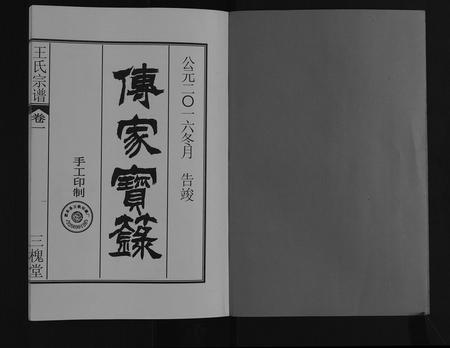 公元二〇一六冬月 告竣
傳家寶籙
手工印制
王氏宗谱
卷一
三槐堂